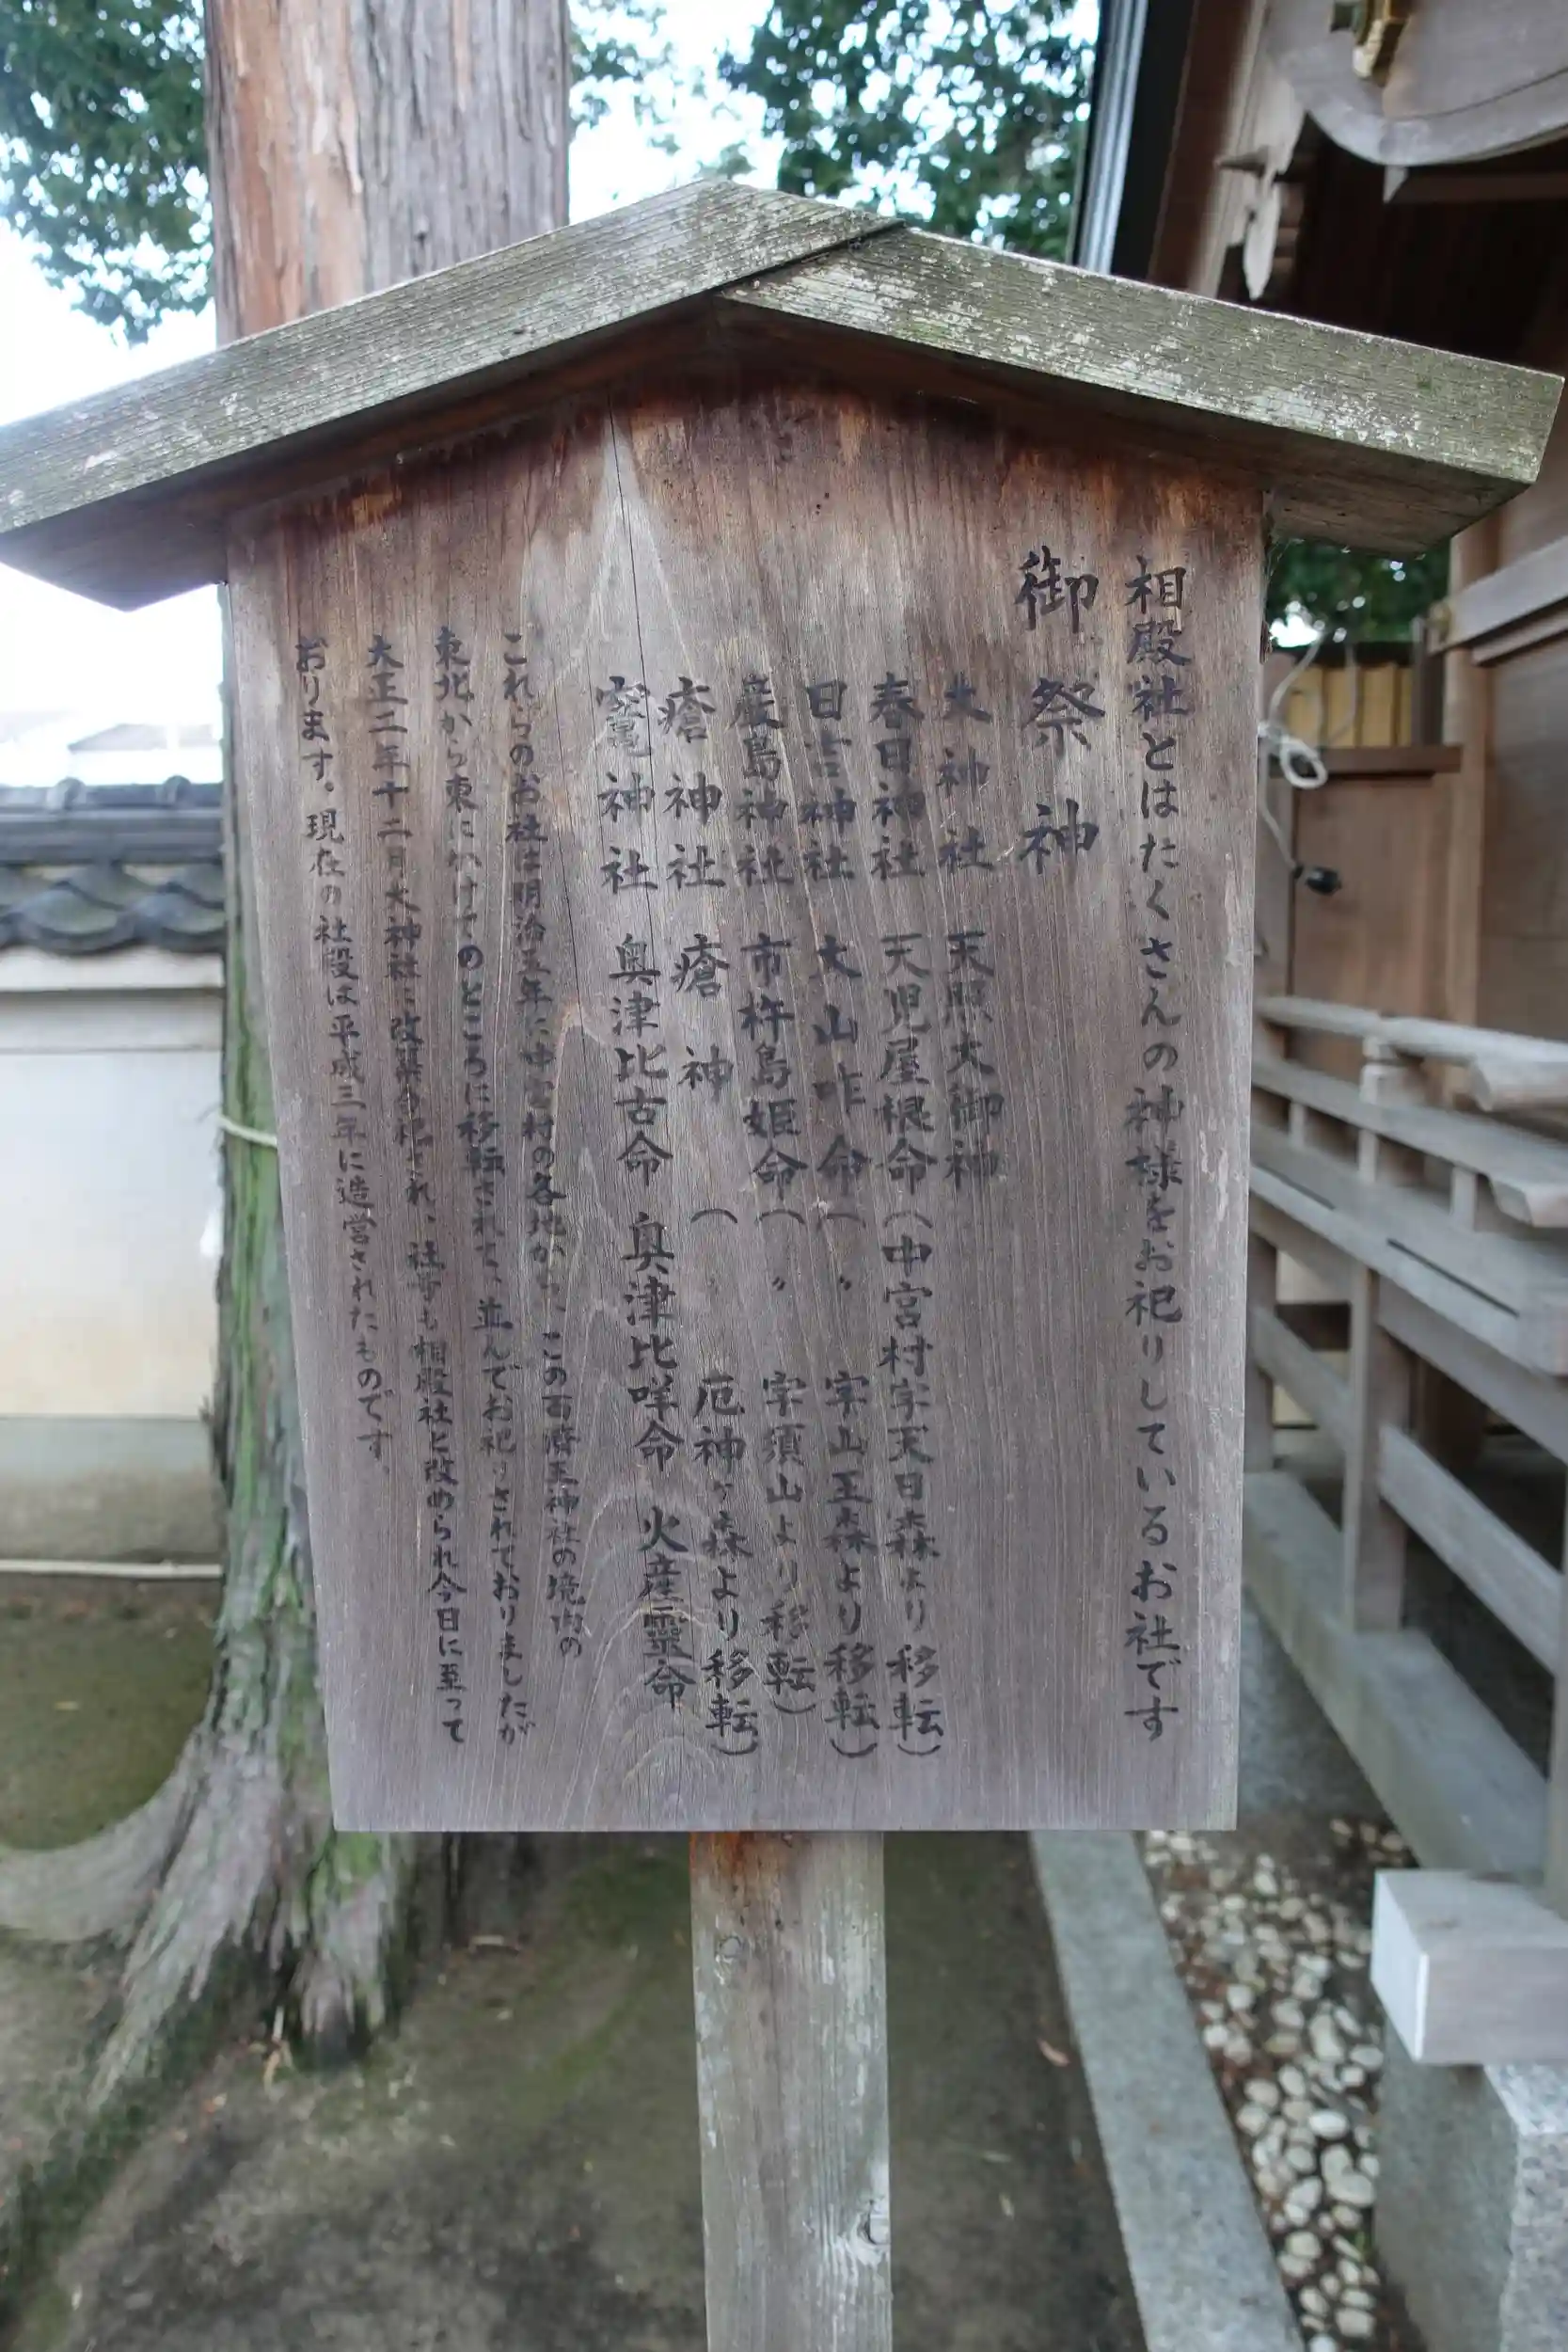 相殿社とはたくさんの神様をお祀りしているお社です
御祭神
大神社 天照大御神
春日神社 天児屋根命(中宮村字天日森より移転)
日吉神社 大山咋命(〃 字山王森より移転)
厳島神社 市杵島姫命(〃 字須山より移転)
瘡神社 瘡神( 厄神ヶ森より移転)
竈神社 奥津比古命 奥津比咩命 火産霊命
これらのお社は明治五年に中宮村の各地から、この百済王神社の境内の
東北から東にかけてのところに移転されて、並んでお祀りされておりましたが
大正二年十二月大神社に改築合祀され、社号も相殿社と改められ今日に至って
おります。現在の社殿は平成三年に造営されたものです。